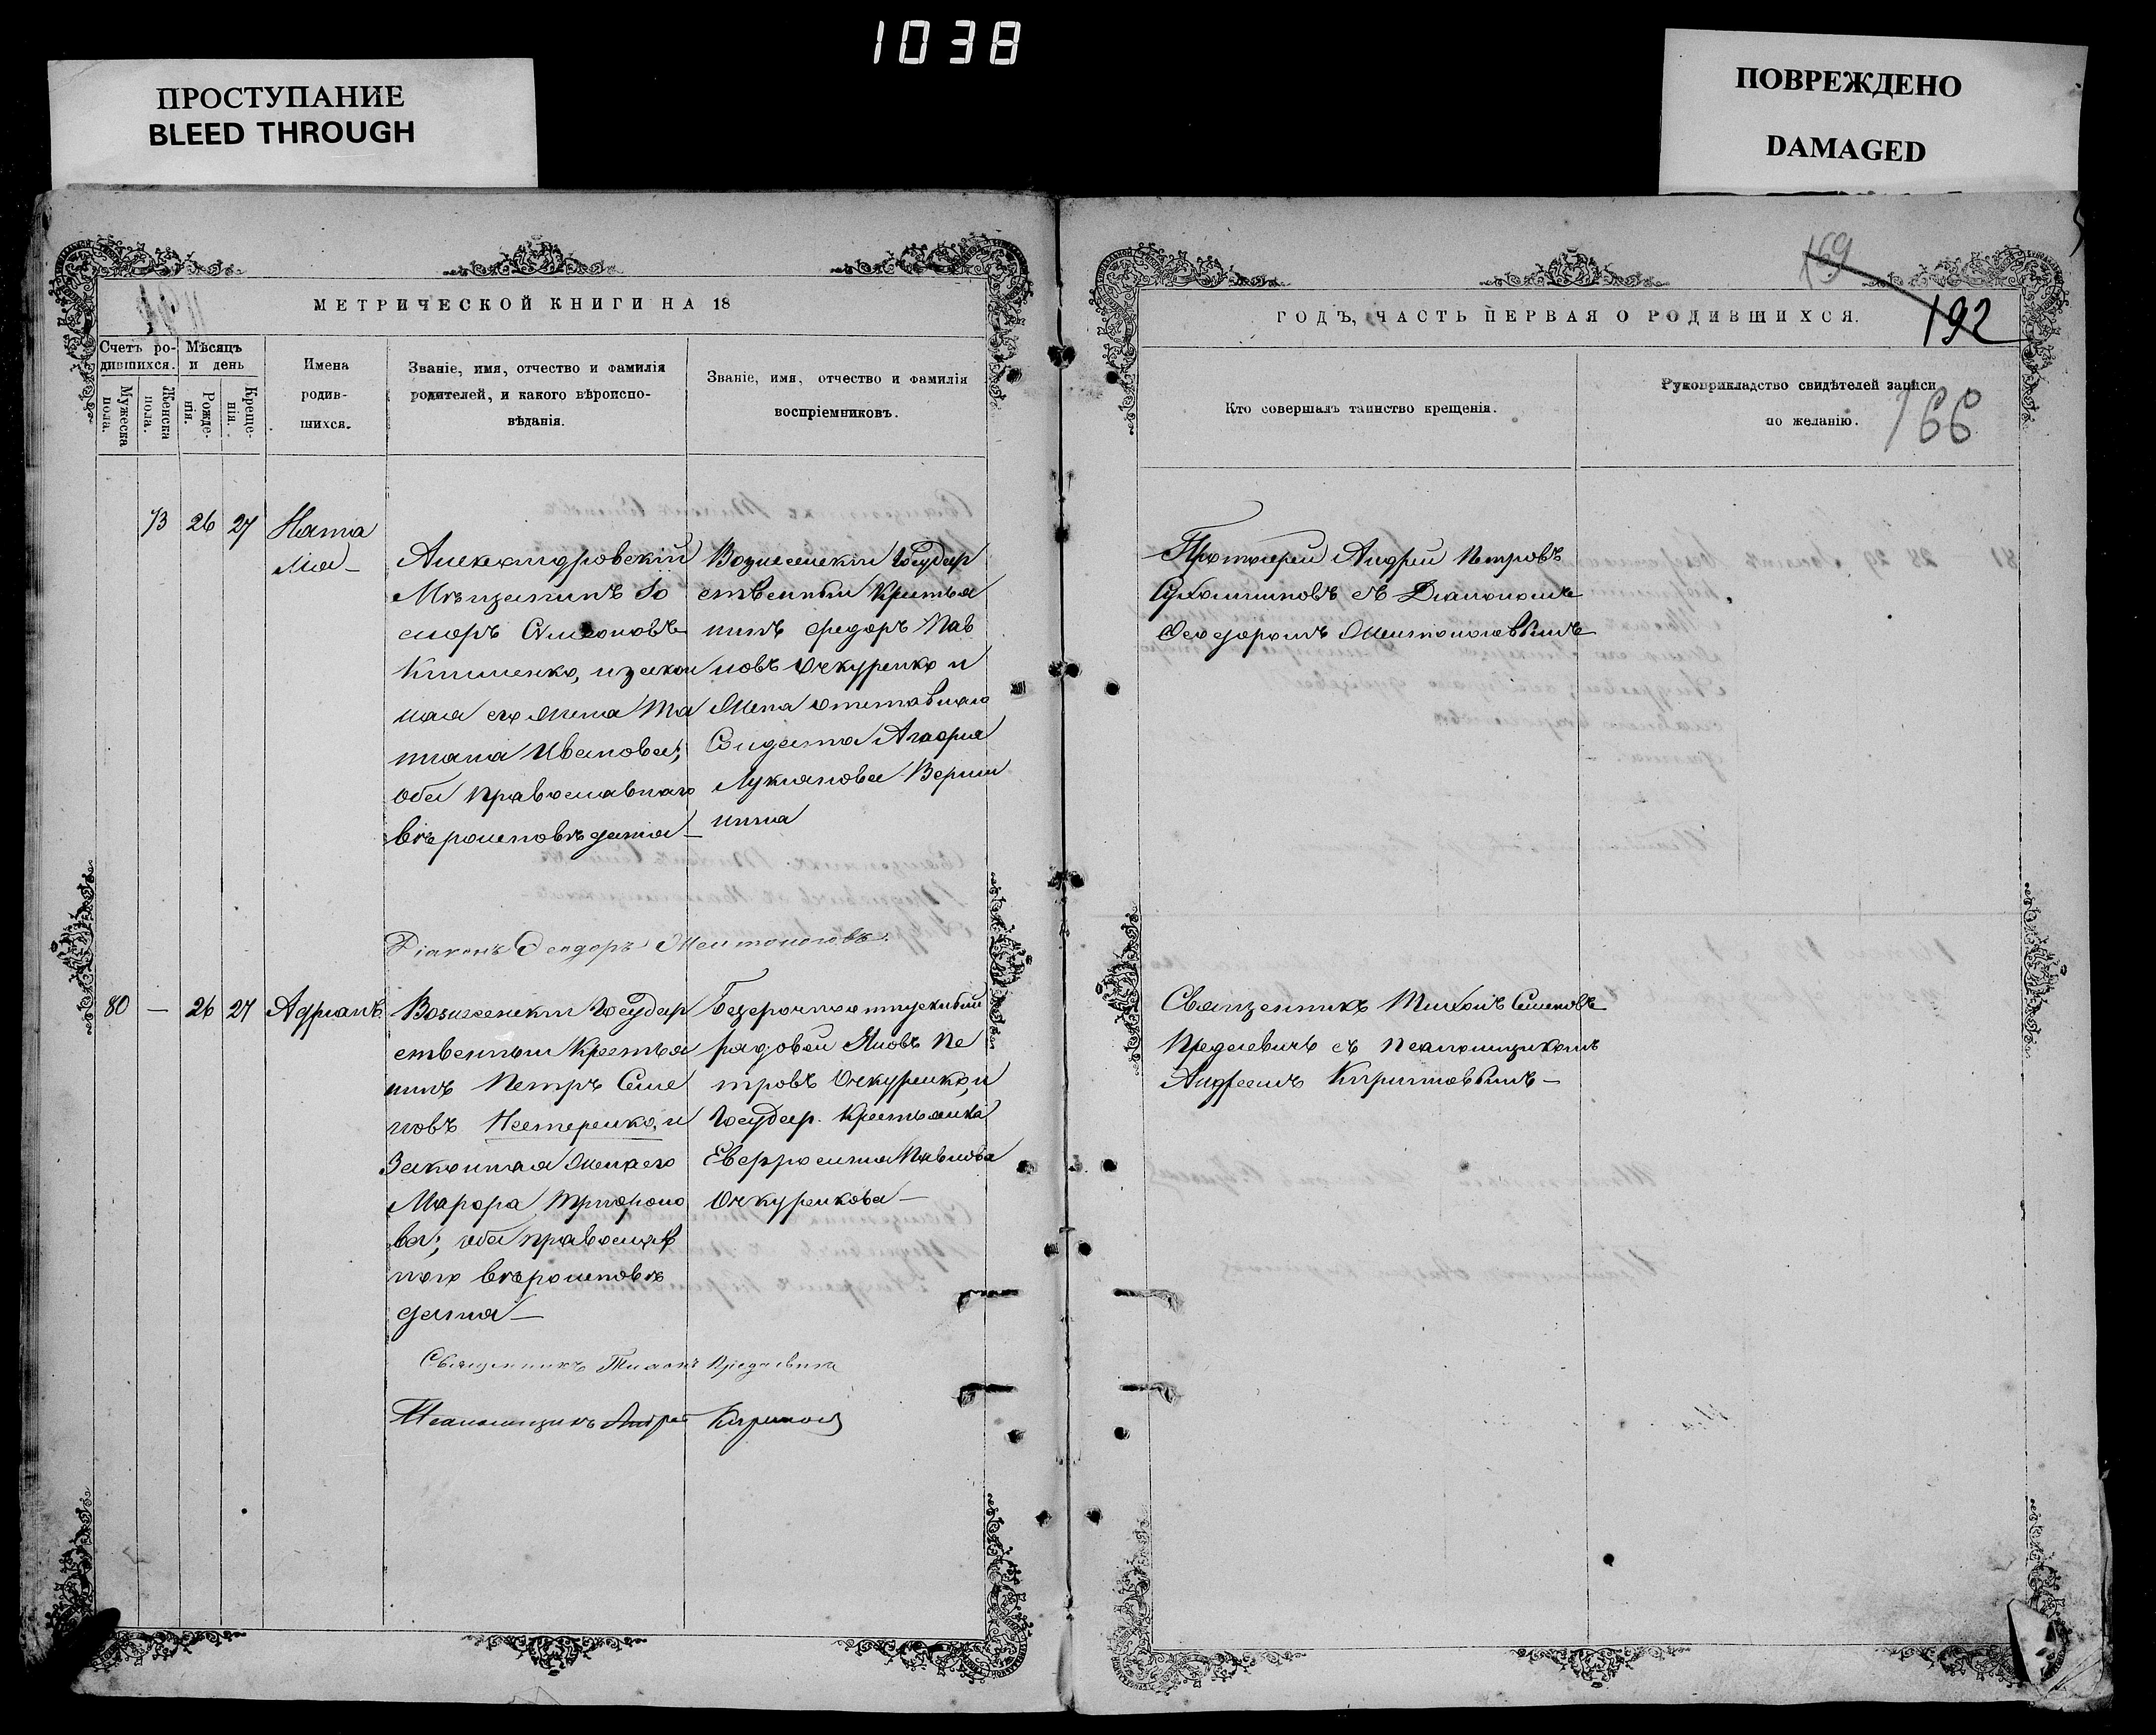 1038
ПРОСТУПАНИЕ
BLEED THROUGH
ПОВРЕЖДЕНО
DAMAGED
МЕТРИЧЕСКОЙ КНИГИ НА 18
Счетъ ро-
дившихся.
Мѣсяцъ
и день
Мужеска
пола.
Женска
пола.
Рожде-
нія.
Креще-
нія.
Имена
родив-
шихся.
Званіе, имя, отчество и фамилія
родителей, и какого вѣроиспо-
вѣданія.
Званіе, имя, отчество и фамилія
воспріемниковъ.
73 26 27 Ната
лія
Александровскій
Мѣщанинъ
Симеоновъ
Клименко, и закон
ная его жена Та
тіана Иванова;
оба православнаго
вѣроисповѣданія
Вознесенскій Государ
ственный Крестья
нинъ Федоръ Пав
ловъ Очкуренко и
жена отставнаго
Солдата
Лукіанова
Діаконъ Феодоръ
80 — 26 27 Адріанъ
Вознесенскій Государ
ственный Крестья
нинъ Петръ Семе
новъ Нестеренко, и
Законная жена его
Марфа Трифоно
ва; оба православ
наго вѣроисповѣ
данія
Безсрочноотпускный
рядовой Яковъ Пе
тровъ Очкуренко, и
Государ. Крестьянка
Евфросинія Павлова
Очкуренкова
Священникъ Тихонъ
Псаломщикъ Андрей Кириловъ
169
192
166
ГОДЪ, ЧАСТЬ ПЕРВАЯ О РОДИВШИХСЯ.
Кто совершалъ таинство крещенія.
Рукоприкладство свидѣтелей записи
по желанію.
Протоіерей Андрей Петровъ
съ Діакономъ
Феодоромъ
Священникъ Тихонъ Симеоновъ
съ Псаломщикомъ
Андреемъ Кириловымъ